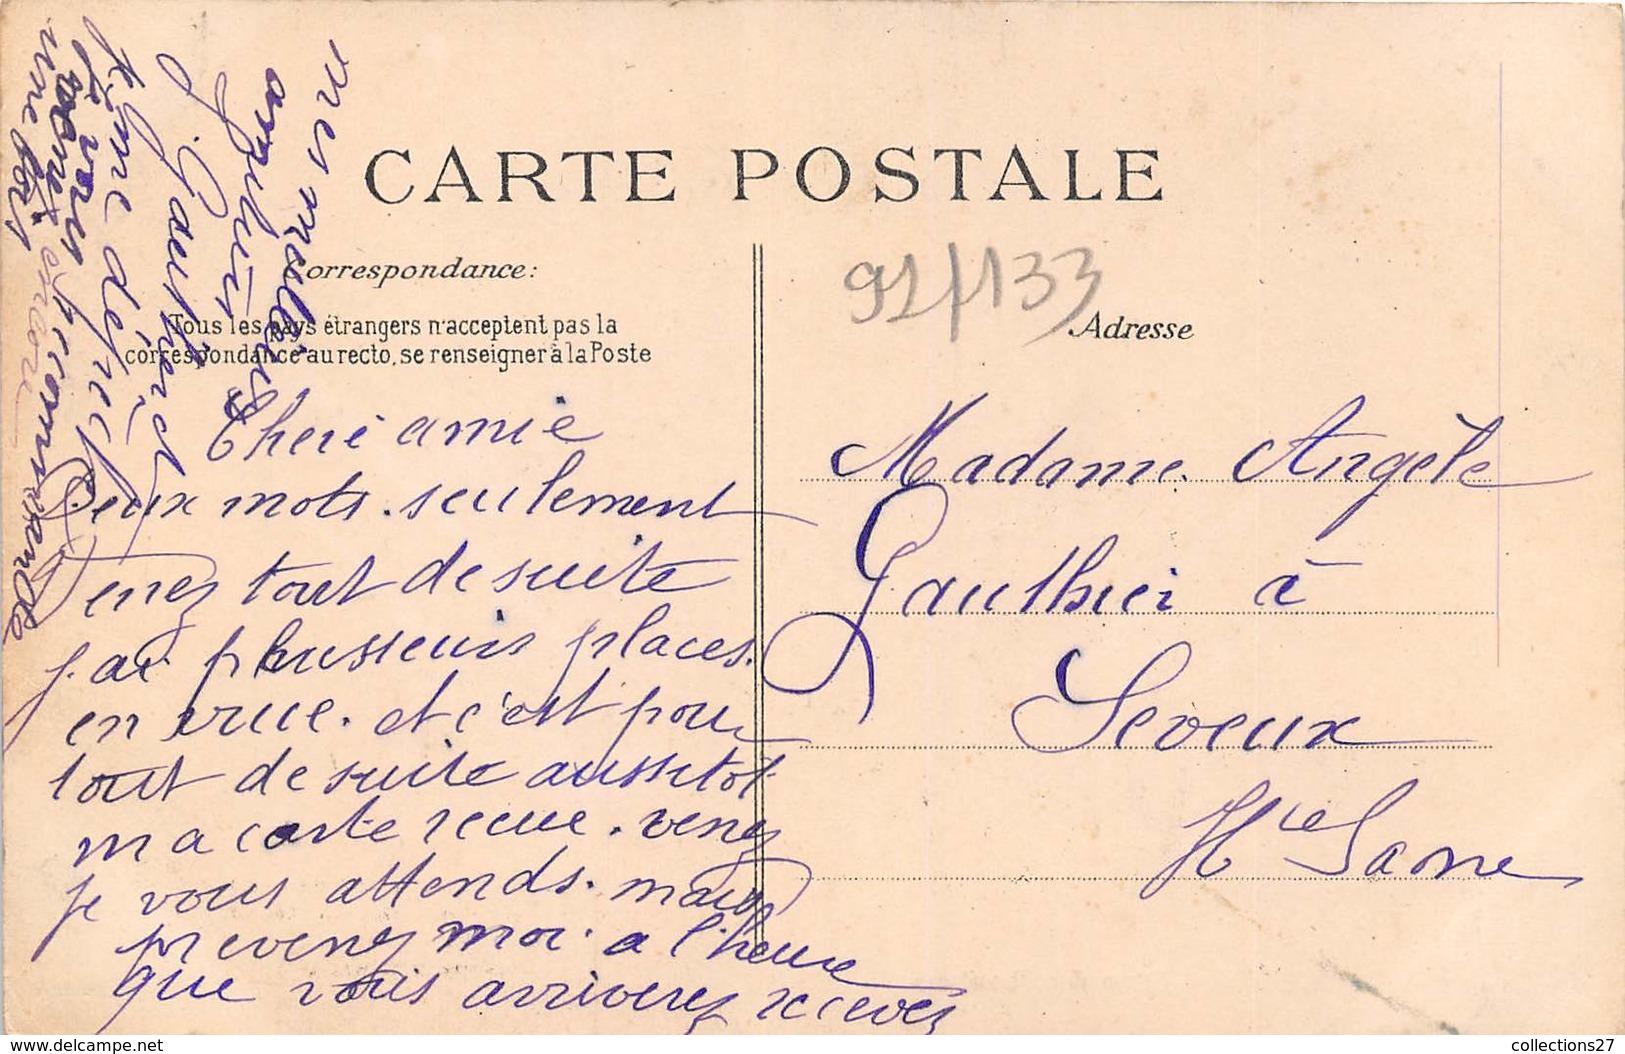 CARTE POSTALE
Correspondance:
Tous les pays étrangers n'acceptent pas la
correspondance au recto, se renseigner à la Poste
92/133
Adresse
Madame Angèle
Gauthier à
Seveux
Hte Saone
Cheré amie
Deux mots. seulement
Venez tout de suite
j. ai plusseurs places.
en vue. et c'est pour
tout de suite aussitot
ma carte recue. venez
je vous attends. mais
prevenez moi. a l.heure
que vous arriverez recevez
mes meilleurs
amities
Gauthier
je vous recommande
encore
une fois
collections27